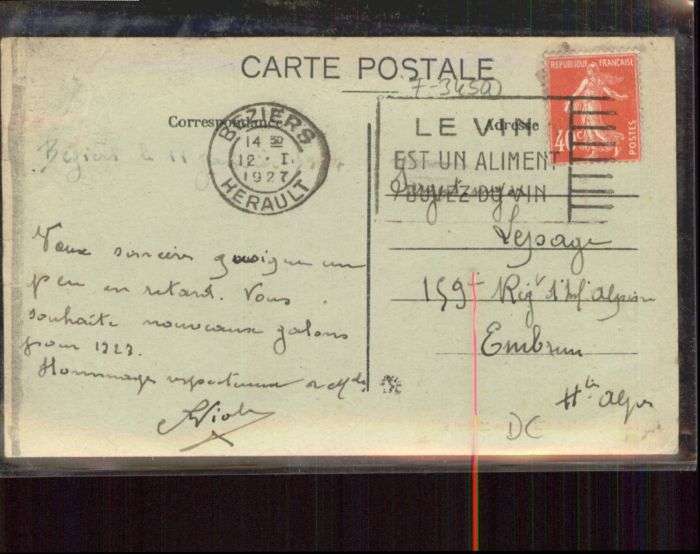 CARTE POSTALE
7-3450
Correspondance
Adresse
BEZIERS
14 30
12 . I .
1927
HERAULT
LE VIN
EST UN ALIMENT
BUVEZ DU VIN
REPUBLIQUE FRANÇAISE
40c
POSTES
Béziers le 11
Vœux sincères quoique un
peu en retard. Vous
souhaite nouveaux galons
pour 1927.
Hommages respectueux à Mme
Sergent
Lepage
159e Regt d'Inf Alpine
Embrun
Htes Alpes
DC